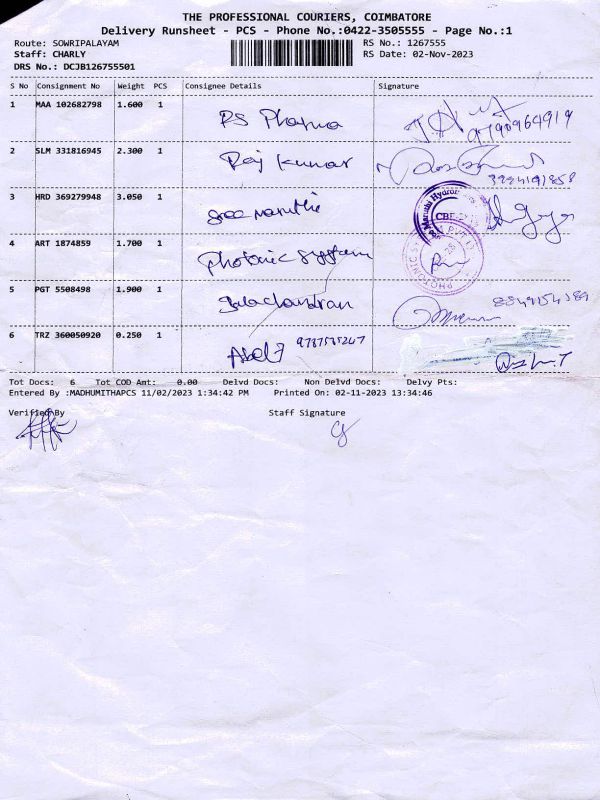 THE PROFESSIONAL COURIERS, COIMBATORE
Delivery Runsheet - PCS - Phone No.:0422-3505555 - Page No.:1
Route: SOWRIPALAYAM RS No.: 1267555
Staff: CHARLY RS Date: 02-Nov-2023
DRS No.: DCJB126755501
S No Consignment No Weight PCS Consignee Details Signature
1 MAA 102682798 1.600 1 RS Pharma 9790964919
2 SLM 331816945 2.300 1 Raj kumar
3 HRD 369279948 3.050 1 Sree maruthi
4 ART 1874859 1.700 1 Photonic system
5 PGT 5508498 1.900 1 Balachandran
6 TRZ 360050920 0.250 1
Tot Docs: 6 Tot COD Amt: 0.00 Delvd Docs: Non Delvd Docs: Delvy Pts:
Entered By :MADHUMITHAPCS 11/02/2023 1:34:42 PM Printed On: 02-11-2023 13:34:46
Verified By Staff Signature